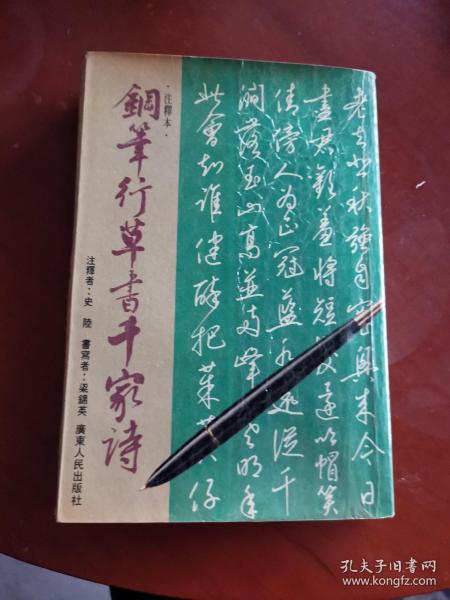 老去悲秋強自寬興來今日
盡君歡羞將短髮還吹帽笑
倩傍人為正冠藍水遠從千
澗落玉山高並兩峰寒明年
此會知誰健醉把茱萸仔
·注釋本·
鋼筆行草書千家詩
注釋者：史陸 書寫者：梁錦英 廣東人民出版社
孔夫子旧书网
www.kongfz.com